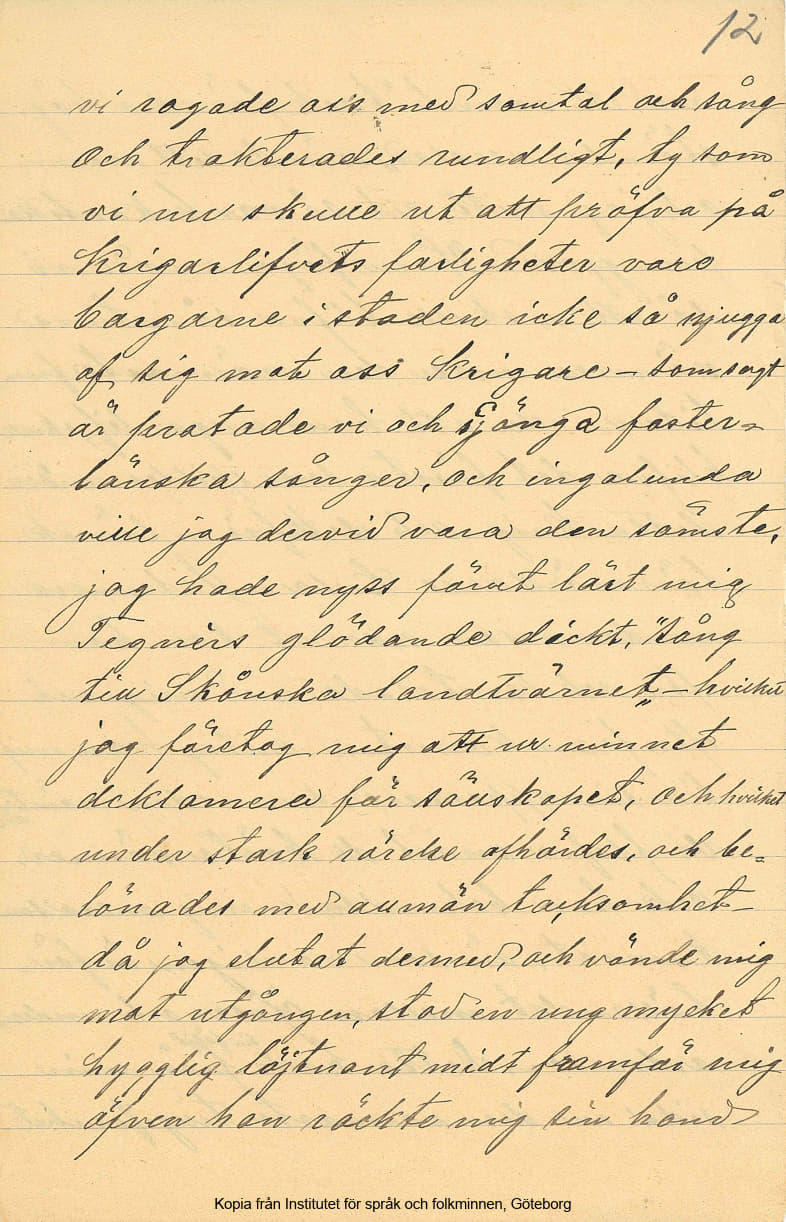 12
vi rogade oss med samtal och sång
och trakterades rundligt, ty som
vi nu skulle ut att pröfva på
Krigarlifvets farligheter voro
borgarne i staden icke så njugga
af sig mot oss Krigare – som sagt
är pratade vi och sjönga foster=
länska sånger, och ingalunda
ville jag dervid vara den sämste,
jag hade nyss förut lärt mig
Tegnérs glödande dickt, "sång
till Skånska landtvärnet" – hvilken
jag företog mig att ur minnet
deklamera för sällskapet, och hvilket
under stark rörelse afhördes, och be=
lönades med allmän tacksomhet –
då jag slutat dermed, och vände mig
mot utgången, stod en ung mycket
hygglig löjtnant midt framför mig
äfven han räckte mig sin hand
Kopia från Institutet för språk och folkminnen, Göteborg